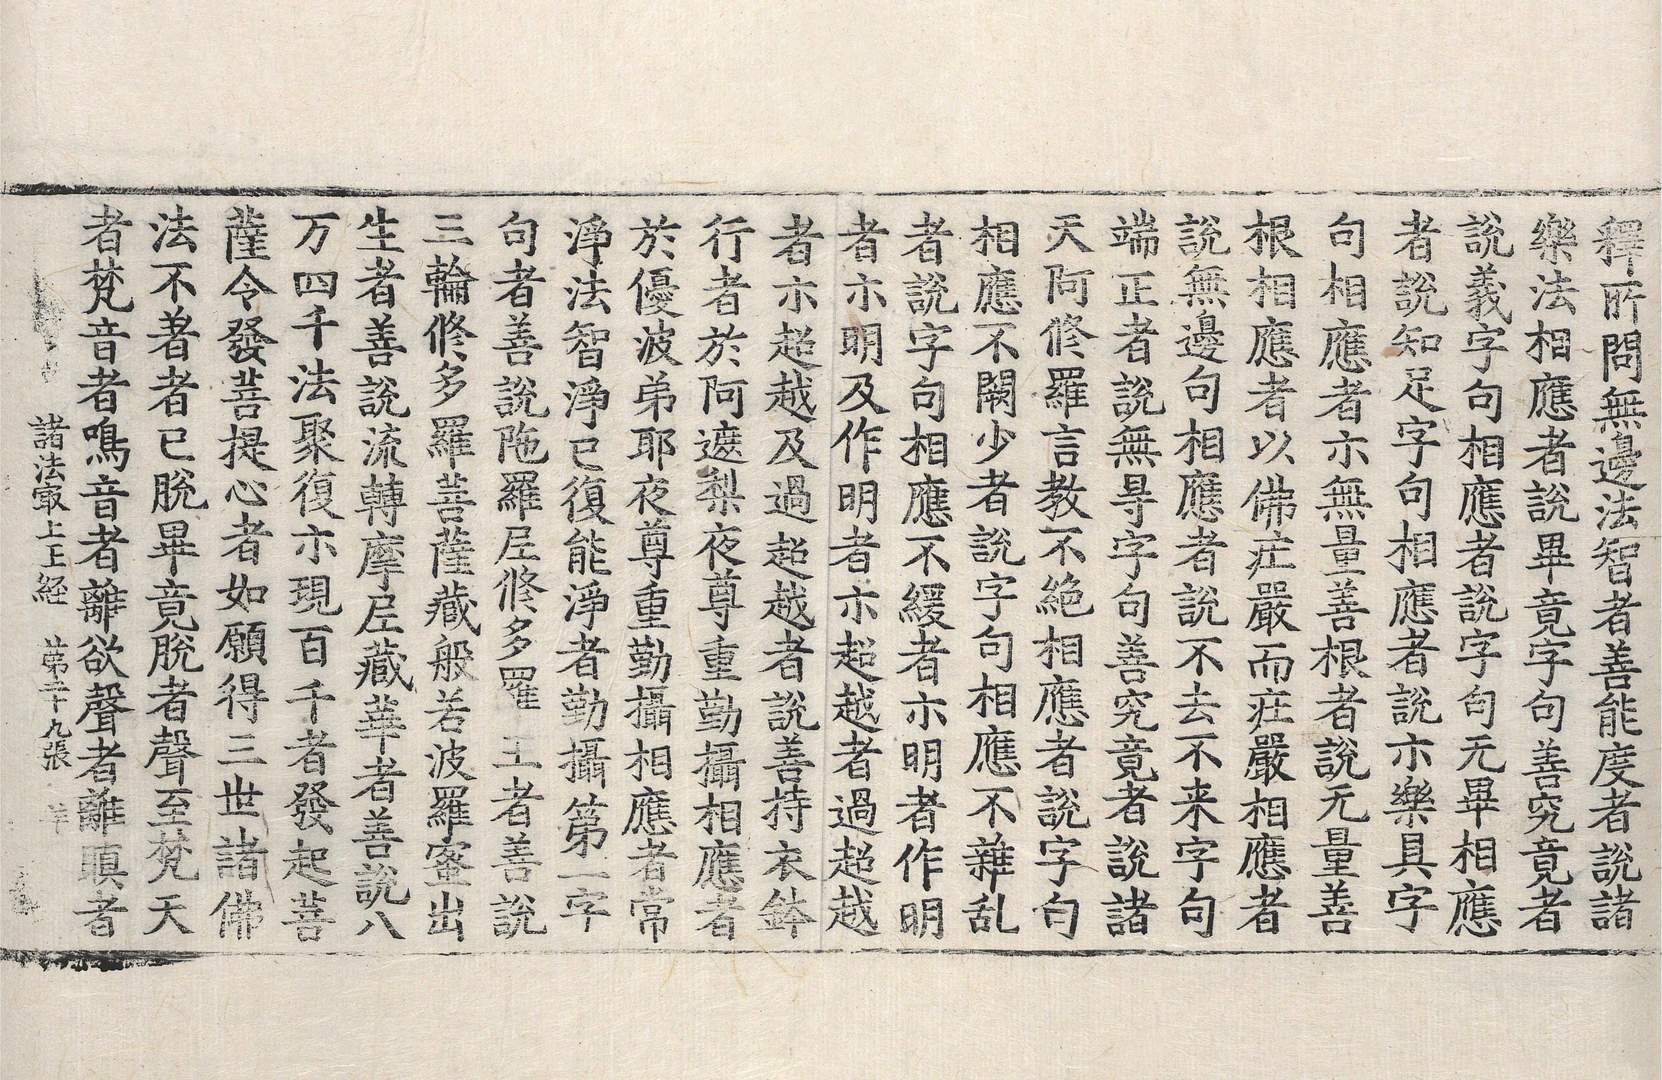 釋所問無邊法智者善能度者說諸
樂法相應者說畢竟字句善究竟者
說義字句相應者說字句无畢相應
者說知足字句相應者說亦樂具字
句相應者亦無量善根者說无量善
根相應者以佛庄嚴而庄嚴相應者
說無邊句相應者說不去不来字句
端正者說無㝵字句善究竟者說諸
天阿修羅言教不絶相應者說字句
相應不闕少者說字句相應不雜乱
者說字句相應不緩者亦明者作明
者亦明及作明者亦超越者過超越
者亦超越及過超越者說善持衣鉢
行者於阿遮梨夜尊重勤攝相應者
於優波弟耶夜尊重勤攝相應者常
淨法智淨已復能淨者勤攝第一字
句者善說陁羅尼修多羅王者善說
三輪修多羅菩薩藏般若波羅蜜出
生者善說流轉摩尼藏華者善說八
万四千法聚復亦現百千者發起菩
薩令發菩提心者如願得三世諸佛
法不著者已脫畢竟脫者聲至梵天
者梵音者鳴音者離欲聲者離瞋者
諸法冣上王経 第二十九張 羊